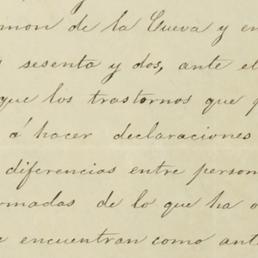 mon de la Cueva y en
sesenta y dos, ante el
que los trastornos que
á hacer declaraciones
diferencias entre person
rmadas de lo que ha o
e encuentran como ant